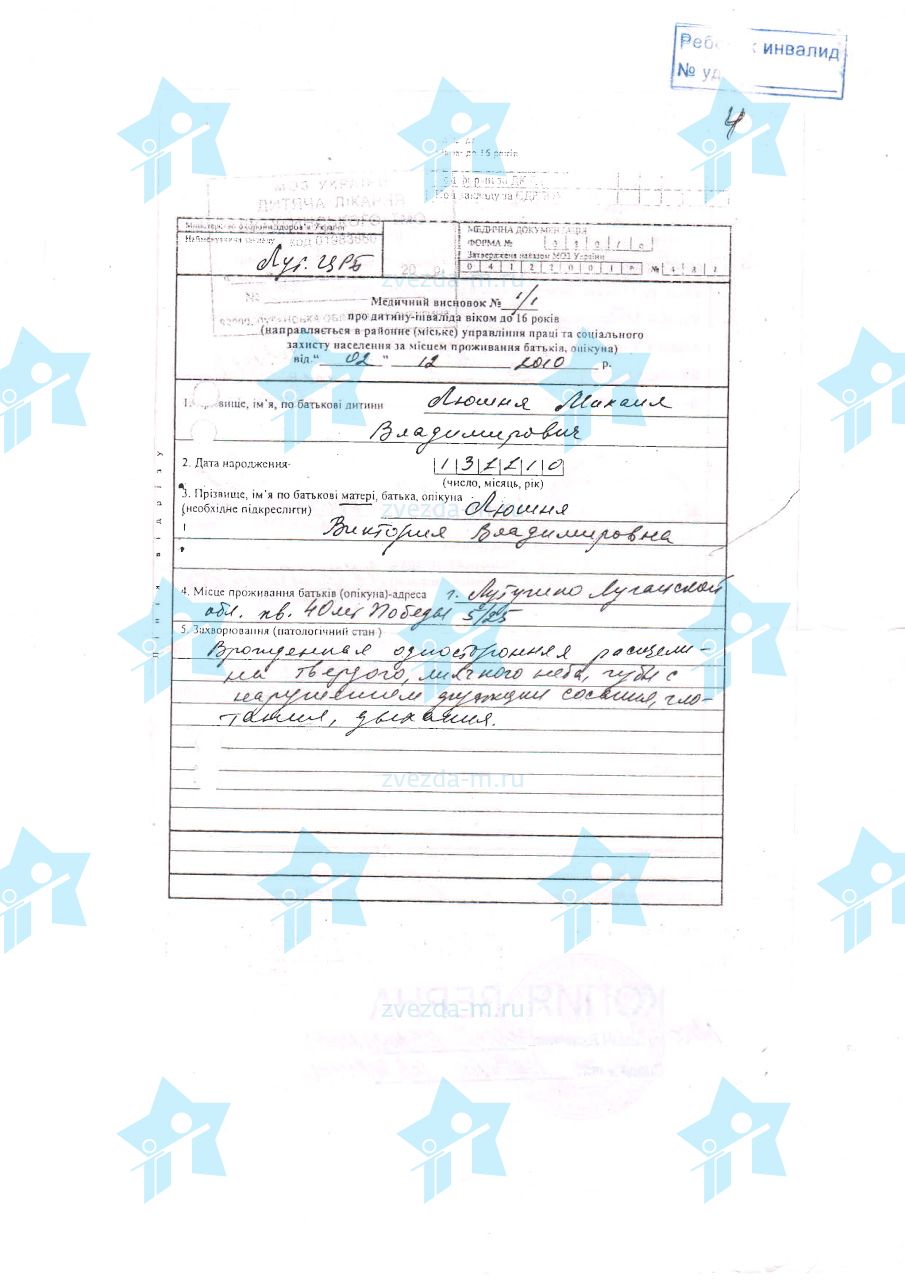 инвалид
№ уд
4
до 16 років
МОЗ УКРАЇНИ
ДИТЯЧА ЛІКАРНЯ
Міністерство охорони здоров'я України
Найменування закладу
код 01983660
Лут. ЦРБ
МЕДИЧНА ДОКУМЕНТАЦІЯ
ФОРМА №
Затверджена наказом МОЗ України
0 4 1 2 2 0 0 1 р. №
zvezda-m.ru
Медичний висновок № 1/1
про дитину-інваліда віком до 16 років
(направляється в районне (міське) управління праці та соціального
захисту населення за місцем проживання батьків, опікуна)
від " 02 " 12 2010 р.
1. Прізвище, ім'я, по батькові дитини Люшня Михаил
Владимирович
2. Дата народження- 1 3 1 1 1 0
(число, місяць, рік)
3. Прізвище, ім'я по батькові матері, батька, опікуна
(необхідне підкреслити) Люшня
zvezda-m.ru
Виктория Владимировна
4. Місце проживання батьків (опікуна)-адреса г. Лутугино Луганской
обл. кв. 40 лет Победы 5/25
5. Захворювання (патологічний стан )
Врожденная односторонняя расщели-
на твердого, мягкого неба, губы с
нарушением функции сосания, гло-
тания, дыхания.
zvezda-m.ru
КОПИЯ ВЕРНА
zvezda-m.ru